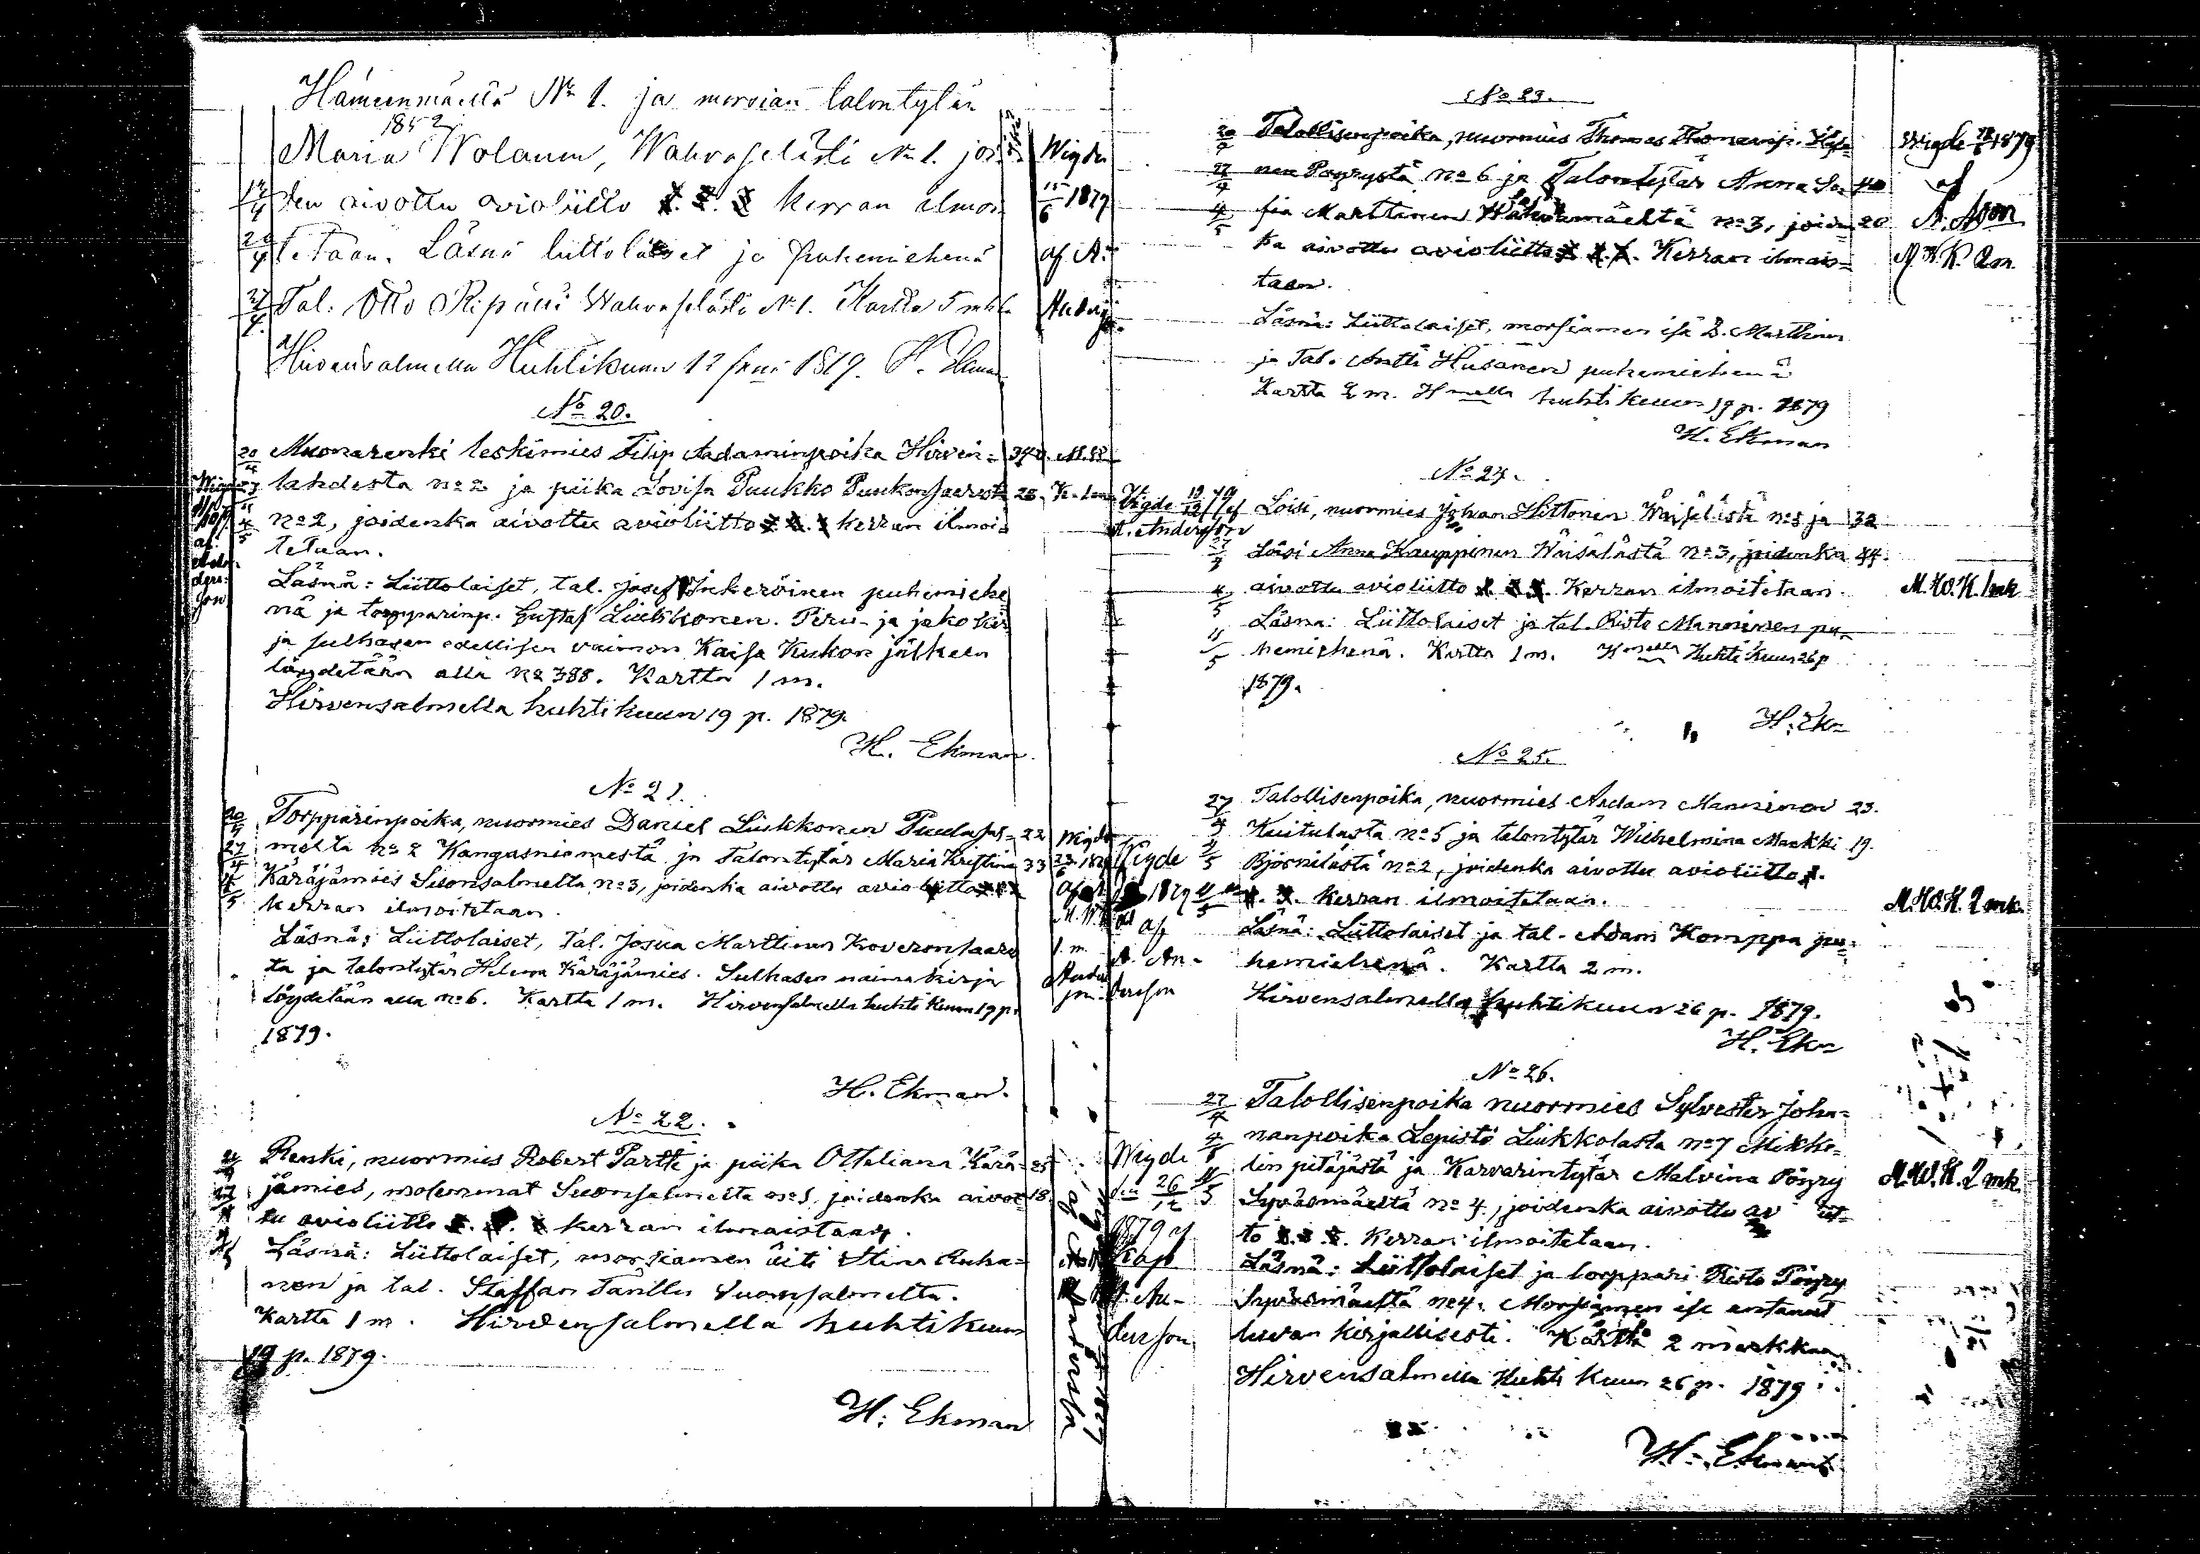 Hämeenmäeltä No 1. ja morsian talontytär
1852
Maria Nolanen, Wahvaselästä No 1. joi-
den aivottu avioliitto 1. 2. 3 kerran ilmoi-
tetaan. Läsnä liittolaiset ja puhemiehenä
Tal. Otto Ripatti Wahvaselästä No 1. Kartta 5 mk
Hirvensalmella Huhtikuun 12 p:nä 1879. H. Ekman
Wigde
15/6 1879
af A.
Anders-
son
No 20.
20/4 Muonarenki leskimies Filip Aadaminpoika Hirven-
lahdesta No 2 ja piika Lovisa Puukko Puukonsaaresta 28.
No 2, joidenka aivottu avioliitto 1. 2. 3 kerran ilmoi-
tetaan.
Läsnä: Liittolaiset, tal. Josef Inkeröinen puhemiehe
nä ja torpparinp. Gustaf Liukkonen. Peru- ja jako kir
ja sulhasen edellisen vaimon Kaisa Kukon jälkeen
löydetään alla No 388. Kartta 1 m.
Hirvensalmella huhtikuun 19 p. 1879.
H. Ekman.
No 21.
20/4 Torpparinpoika, nuormies Daniel Liukkonen Puulasal- 22
27/4 melta No 2 Kangasniemestä ja Talontytär Maria Kristina 33
4/5 Käräjämies Suonsalmelta No 3, joidenka aivottu avioliitto 1. 2. 3
kerran ilmoitetaan.
Läsnä: Liittolaiset, Tal. Josua Marttinen Koveronsaares
ta ja talontytär Helena Käräjämies. Sulhasen naimakirja
löydetään alla No 6. Kartta 1 m. Hirvensalmella huhtikuun 19 p.
1879.
H. Ekman.
No 22.
Renki, nuormies Robert Partti ja piika Ottaliana Kärä- 25
jämies, molemmat Suonsalmelta No 5, joidenka aivot- 18.
tu avioliitto 1. 2. 3 kerran ilmaistaan.
Läsnä: Liittolaiset, morsiamen äiti Stina Auha-
nen ja tal. Staffan Tanttu Suonsalmelta.
Kartta 1 m. Hirvensalmella huhtikuun
19 p. 1879.
H. Ekman
No 23.
20/4 Talollisenpoika, nuormies Thomas Thomaanp.
27/4 nen Pöyrystä No 6 ja Talontytär Anna So-
4/5 fia Marttinen Wahvamäeltä No 3, joiden- 20
ka aivottu avioliitto 1. 2. 3. Kerran ilmais-
taan.
Läsnä: Liittolaiset, morsiamen isä D. Marttinen
ja Tal. Antti Husanen puhemiehenä
Kartta 2 m. Hmella huhtikuun 19 p. 1879
H. Ekman
Wigde 1879
af
A. Ason
M. K. K. 2 m.
No 24.
Wigde 19/12 79 af
A. Andersson
Loisi, nuormies Johan Hiltonen Wäisälästä No 5 ja 32
27/4 Loisi Anna Kauppinen Wäisälästä No 3, joidenka 44.
4/5 aivottu avioliitto 1. 2. 3. Kerran ilmoitetaan.
Läsnä: Liittolaiset ja tal. Risto Manninen pu-
11/5 hemiehenä. Kartta 1 m. Hmella Huhtikuun 26 p
1879.
M. W. K. 1 mk
H. Ek=
No 25.
27/4 Talollisenpoika, nuormies Aadam Manninen 23.
Kuitulasta No 5 ja talontytär Wilhelmina Maukki 19.
4/5 Björnilästä No 2, joidenka aivottu avioliitto 1.
2. 3. kerran ilmoitetaan.
Läsnä: Liittolaiset ja tal. Adam Komppa pu-
hemiehenä. Kartta 2 m.
Hirvensalmella huhtikuun 26 p. 1879.
M. W. K. 2 mk.
H. Ek=
No 26.
27/4 Talollisenpoika nuormies Sylvester Joha-
nanpoika Lepistö Liukkolasta No 7 Mikke-
lin pitäjästä ja Karvarintytär Malvina Pöyry
Syväsmäeltä No 4, joidenka aivottu av
to 1. 2. 3. Kerran ilmoitetaan.
Läsnä: Liittolaiset ja torppari Risto Pöyry
Syväsmäeltä No 4. Morsiamen isä antanut
luvan kirjallisesti. Kartta 2 markkaa
Hirvensalmella Huhtikuun 26 p. 1879
Wigde
den 26/12
1879 af
Kapl
A. An-
dersson
M. W. K. 2 mk
H. Ekman